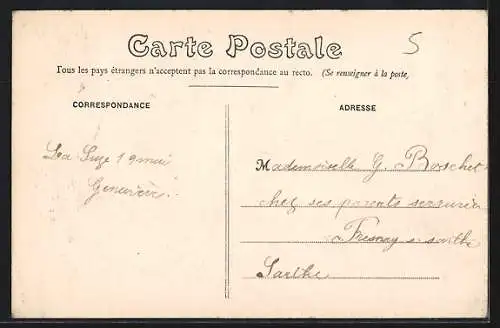 Carte Postale
5
Tous les pays étrangers n'acceptent pas la correspondance au recto. (Se renseigner à la poste,
CORRESPONDANCE
ADRESSE
La Suze 19 mai
Mademoiselle G. Boschet
Geneviève.
chez ses parents serrurier
à Fresnay s sarthe
Sarthe